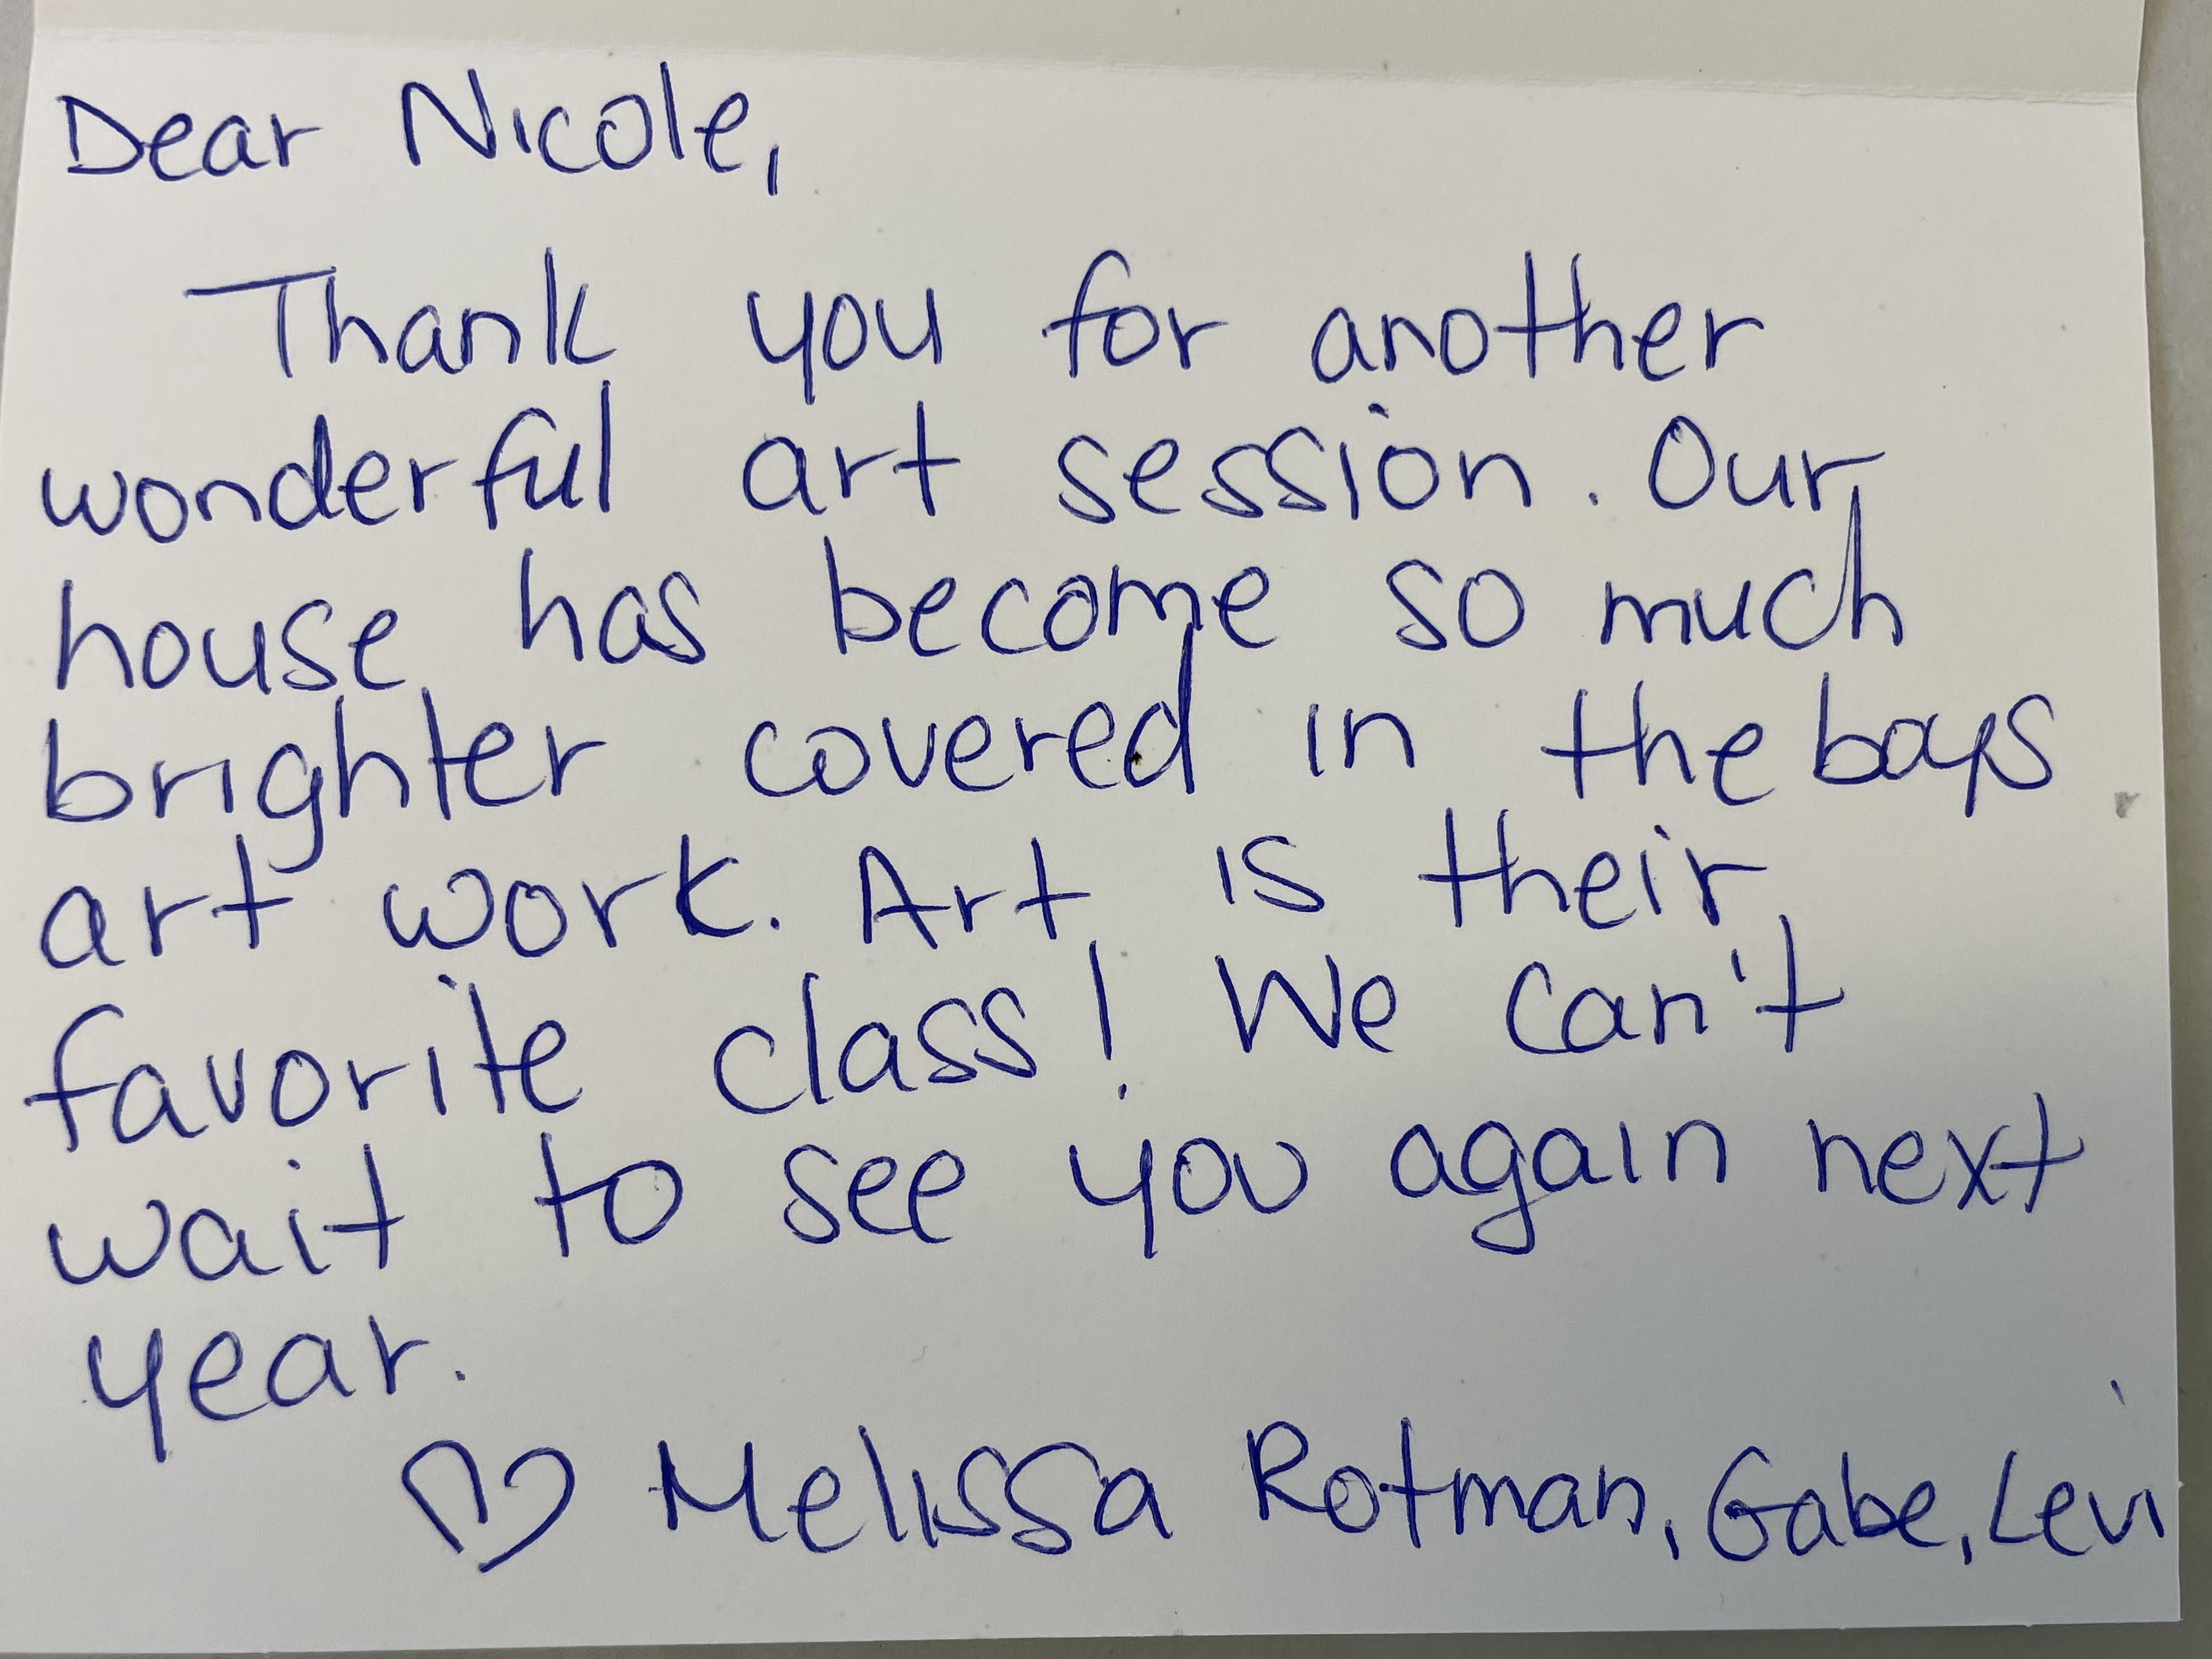 Dear Nicole,
Thank you for another
wonderful art session. Our
house has become so much
brighter covered in the boys
art work. Art is their
favorite class! We can't
wait to see you again next
year.
♡ Melissa Rotman, Gabe, Levi